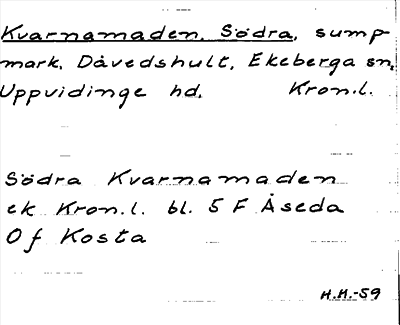 Kvarnamaden, Södra, sump-
mark, Dåvedshult, Ekeberga sn,
Uppvidinge hd. Kron.l.
Södra Kvarnamaden
ek Kron.l. bl. 5 F Åseda
Of Kosta
H.H.-59